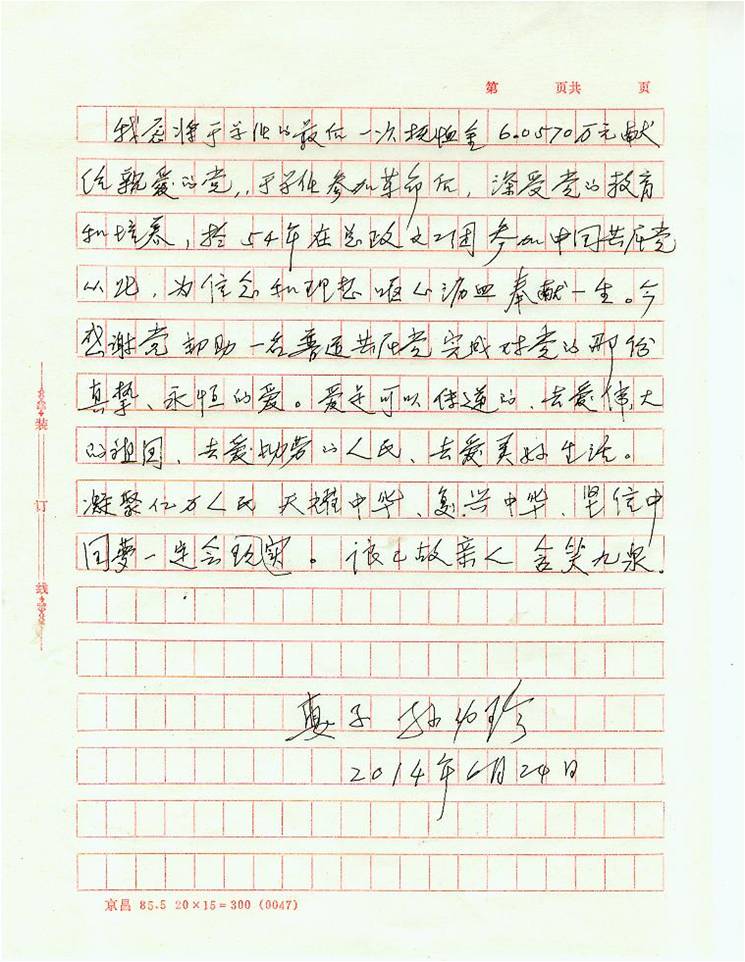 第 页共 页
我 将于学仕的最后一次抚恤金6.0570万元献
给亲爱的党,于学仕参加革命后,深受党的教育
和培养,于54年在总政文工团参加中国共产党
从此,为信念和理想呕心沥血奉献一生。今
感谢党帮助一名普通共产党完成对党的那份
真挚、永恒的爱。爱是可以传递的、去爱伟大
的祖国、去爱勤劳的人民、去爱美好生活。
凝聚亿万人民 中华、复兴中华、坚信中
国夢一定会现实。 已故亲人含笑九泉.
妻子 孙 珍
2014年6月24日
装
订
线
京昌 85.5 20×15=300 (0047)